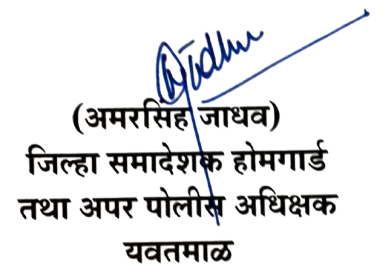 (अमरसिंह जाधव)
जिल्हा समादेशक होमगार्ड
तथा अपर पोलीस अधिक्षक
यवतमाळ